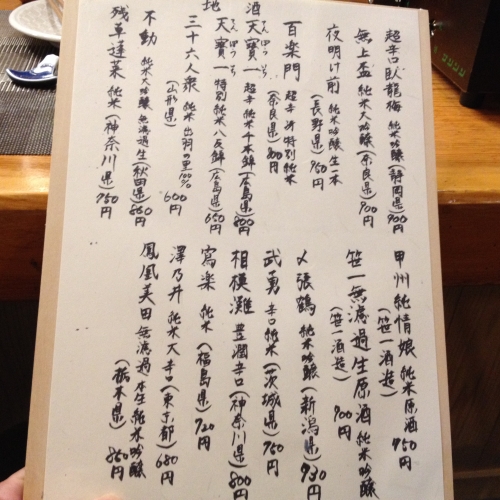 超辛口 臥龍梅 純米吟醸(静岡県)900円
無上盃 純米大吟醸(奈良県)900円
夜明け前 純米吟醸 生一本
(長野県)950円
百楽門 超辛 特別純米
(奈良県)800円
地酒
天寶一 超辛純米 千本錦(広島県)800円
てんぽういち
天寶一 特別純米 八反錦(広島県)650円
てんぽういち
三十六人衆 純米 出羽の里100%
(山形県)600円
不動 純米大吟醸 無濾過生(秋田県)860円
残草蓬莱 純米(神奈川県)750円
甲州純情娘 純米原酒
(笹一酒造)950円
笹一無濾過生原酒 純米吟醸
(笹一酒造)900円
〆張鶴 純米吟醸(新潟県)930円
武勇 辛口純米(茨城県)750円
相模灘 豊潤辛口(神奈川県)800円
寫楽 純米(福島県)720円
澤乃井 純米大辛口(東京都)680円
鳳凰美田 無濾過本生 純米吟醸
(栃木県)860円